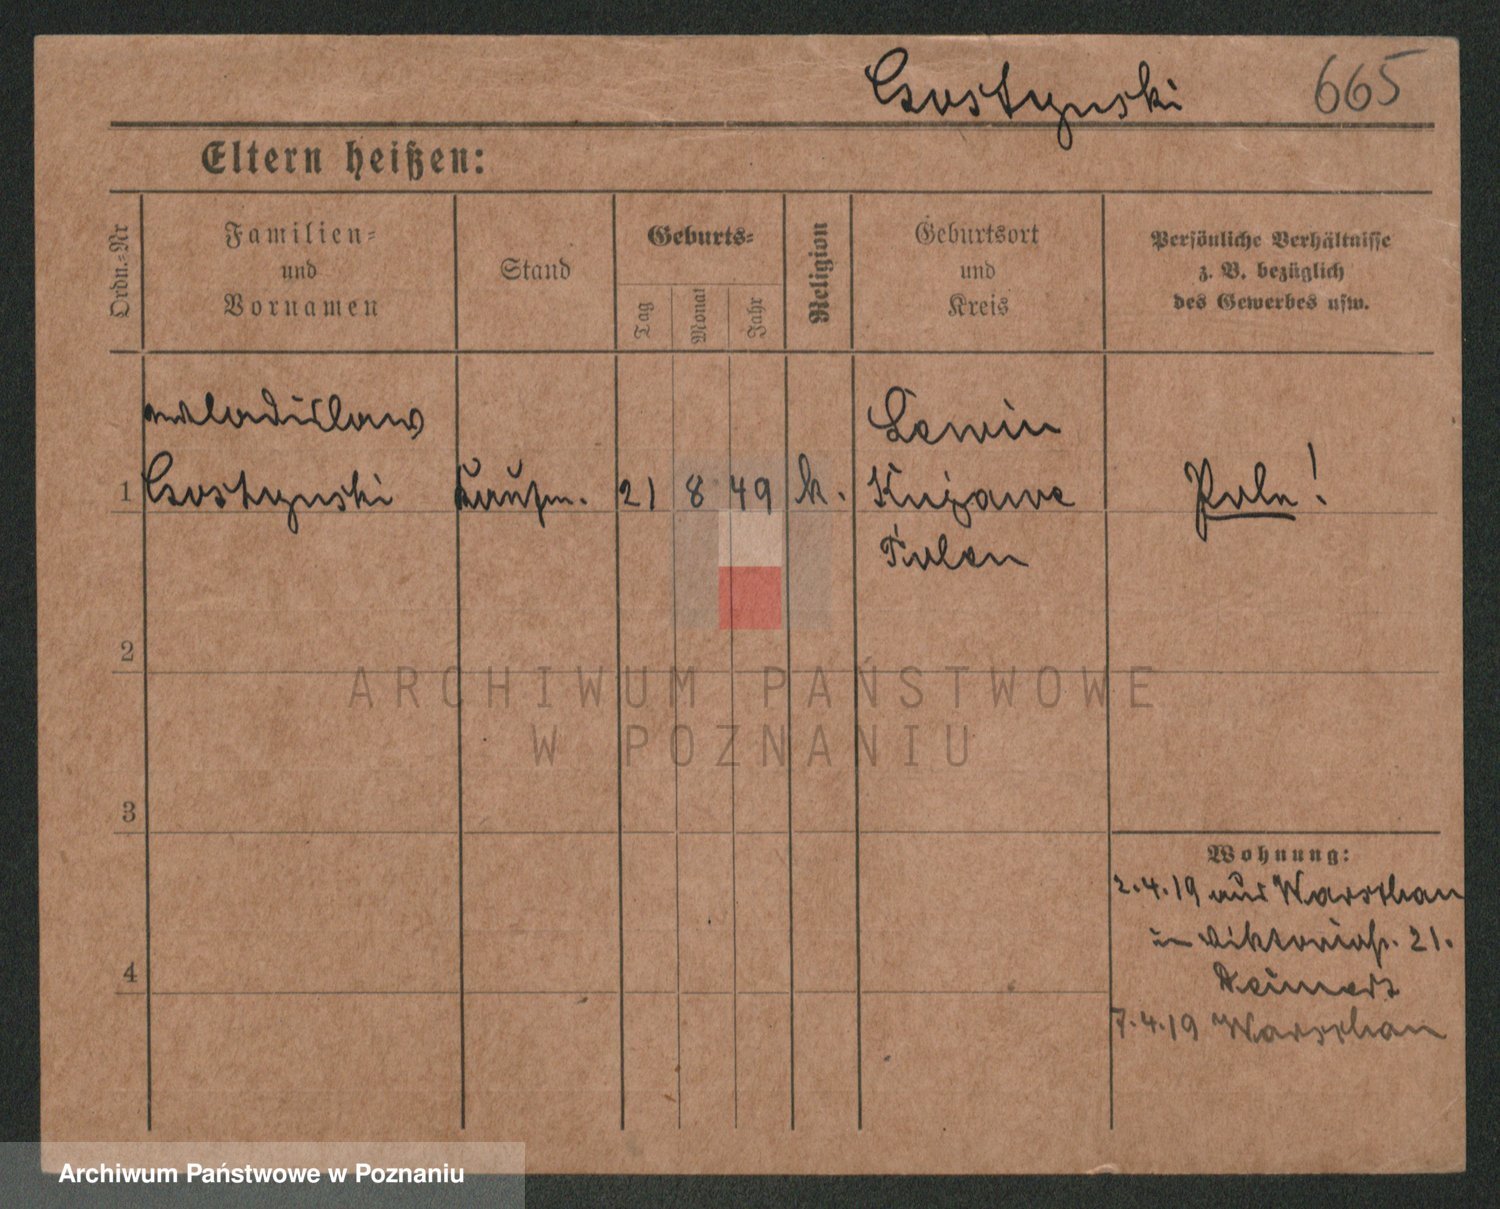 Gostynski 665
Eltern heißen:
Ordn.-Nr
Familien-
und
Vornamen
Stand
Geburts-
Tag
Monat
Jahr
Religion
Geburtsort
und
Kreis
Persönliche Verhältnisse
z. B. bezüglich
des Gewerbes usw.
Wladislaw
1 Gostynski Kaufm. 21 8 49 k.
Lewin
Kujawe
Polen
Pole!
2
3
4
Wohnung:
2.4.19 aus Warschau
in Viktoriastr. 21.
7.4.19 Warschau
ARCHIWUM PAŃSTWOWE
W POZNANIU
Archiwum Państwowe w Poznaniu